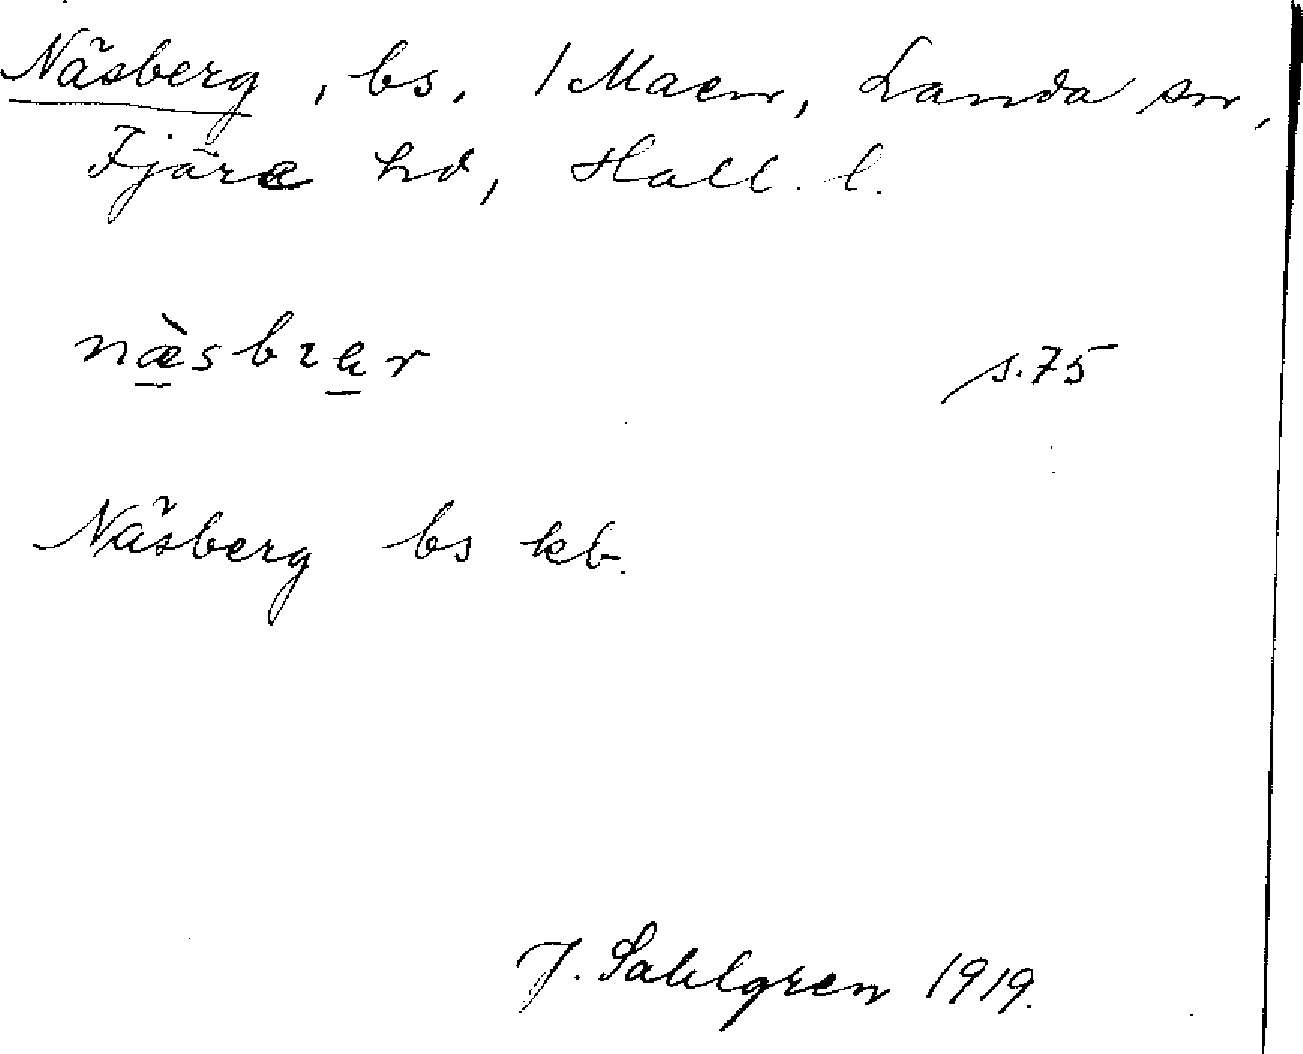 Näsberg, bs. 1 Maen, Landa sn,
Fjäre hd, Hall. l.
næ̀sbrar s. 75
Näsberg bs kb.
J. Sahlgren 1919.